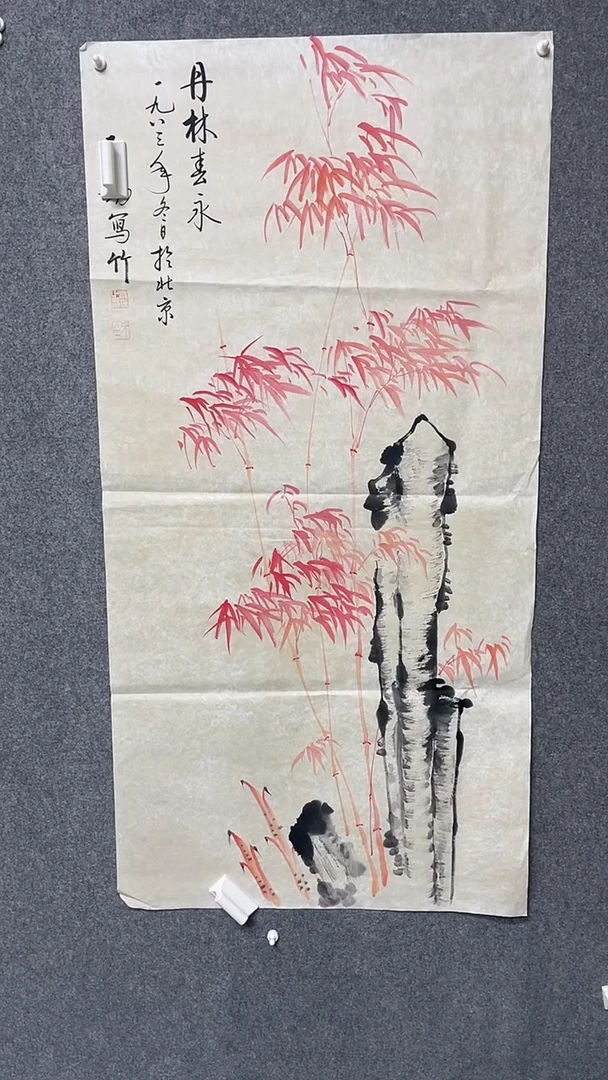 丹林春永
一九八三年冬日於北京
写竹